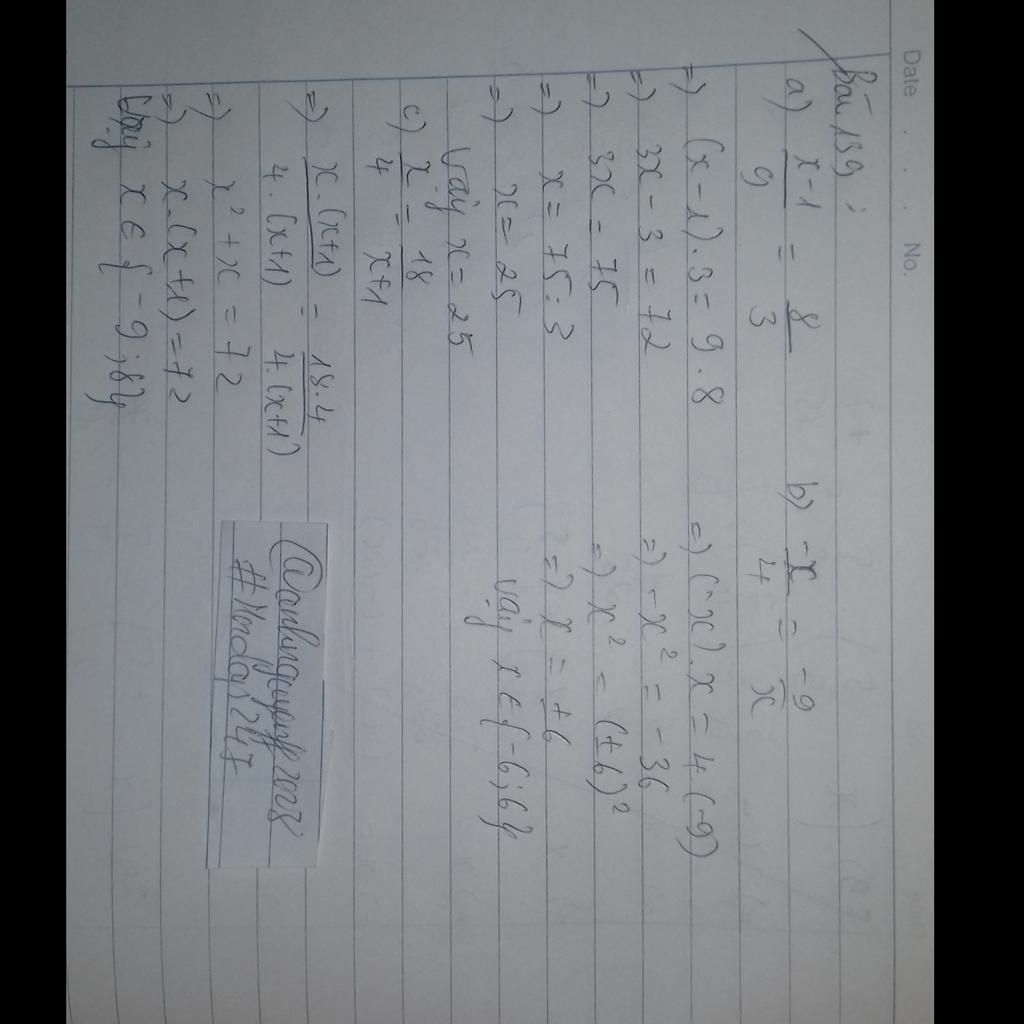 Date . . . No.
Bài 139 :
a) x-1/9 = 8/3
=) (x-1).3 = 9.8
=) 3x - 3 = 72
=) 3x = 75
=) x = 75:3
=) x = 25
Vậy x = 25
b) -x/4 = -9/x
=) (-x).x = 4.(-9)
=) -x² = -36
=) x² = (±6)²
=) x = ±6
Vậy x ∈ {-6;6}
c) x/4 = 18/x+1
=) x.(x+1)/4.(x+1) = 18.4/4.(x+1)
=) x² + x = 72
=) x.(x+1) = 72
Vậy x ∈ {-9;8}
#Hoidap247